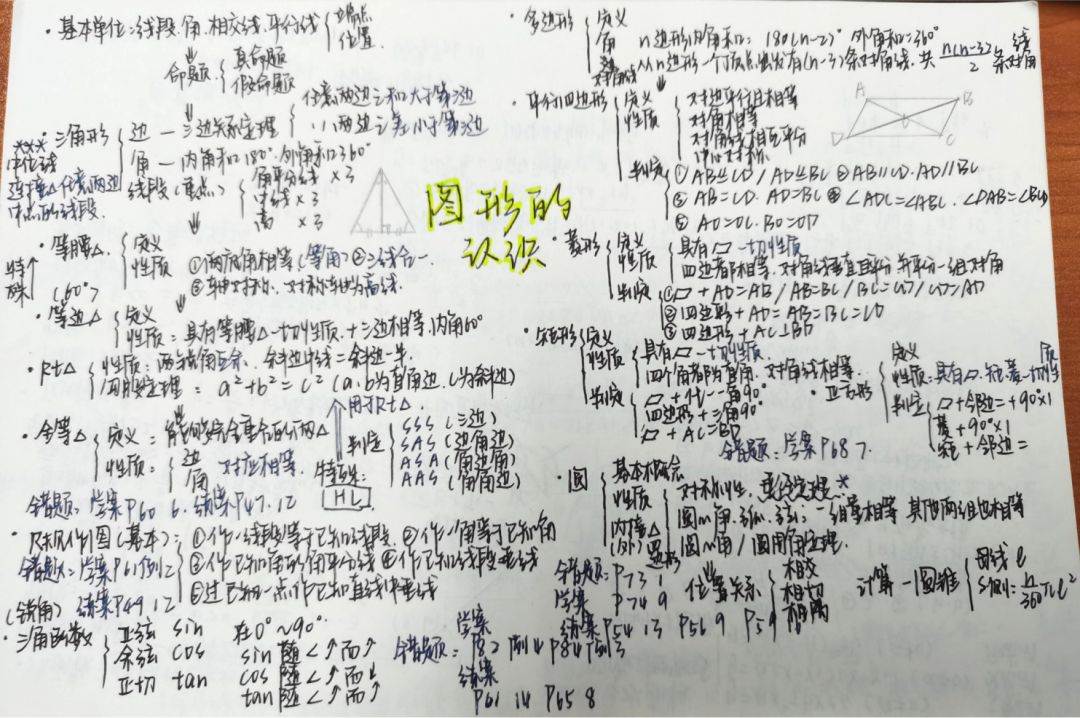 · 基本单位:线段.角.相交线.平行线 { 端点
位置
命题 { 真命题
假命题
· 三角形 { 边 — 三边关系定理 { 任意两边之和大于第三边
〃 两边之差小于第三边
角 — 内角和180°.外角和360°
线段(重点) { 角平分线 ×3
中线 ×3
高 ×3
*** 中位线
连接△任意两边
中点的线段.
图形的
认识
· 等腰△ { 定义
性质 ①两底角相等(等角)②三线合一.
③轴对称.对称轴为高线.
特殊↑
(60°)
· 等边△ { 定义
性质:具有等腰△一切性质.十三边相等.内角60°
· Rt△ { 性质:两锐角互余.斜边中线=斜边一半.
勾股定理 a²+b²=c²(a.b为直角边.c为斜边)
· 全等△ { 定义:能够完全重合的两△
性质: { 边
角 对应相等.
用于Rt△
特殊: HL
判定 { SSS(三边)
SAS(边角边)
ASA(角边角)
AAS(角角边)
错题:学案P60 6.练案P47.12
· 尺规作图(基本): ①作一线段等于已知线段.②作一角等于已知角
③作已知角的角平分线④作已知线段垂线
⑤过已知一点作已知直线中垂线
错题:学案P61例2
(钝角) 练案P49 12
· 三角函数 { 正弦 sin 在0°~90°
余弦 cos sin随∠↑而↑
正切 tan cos随∠↑而↓
tan随∠↑而↑
错题: 学案 P82 例4 P84例3
练案
P61 14 P65 8
· 多边形 { 定义
角 n边形内角和:180(n-2)° 外角和=360°
对角线 从n边形一个顶点出发有(n-3)条对角线.共 n(n-3)/2 条对角线
· 平行四边形 { 定义
性质 { 对边平行且相等
对角相等
对角线相互平分
中心对称.
判定 { ①AB≌CD/AD≌BC ②AB∥CD.AD∥BC
③AB=CD.AD=BC ④∠ADC=∠ABC.∠DAB=∠BCD
⑤AO=OC.BO=OD
A B
D C
· 菱形 { 定义
性质 { 具有▱一切性质
四边都相等.对角线垂直且平分并平分一组对角
判定 { ①▱+AD=AB/AB=BC/BC=CD/CD=AD
②四边形+AD=AB=BC=CD
③四边形+AC⊥BD
· 矩形 { 定义
性质 { 具有▱一切性质
四个角都为直角.对角线相等.
判定 { ▱+任一角90°
四边形+三角90°
▱+AC=BD
正方形 { 定义
性质:具有▱.矩.菱一切性质
判定 { ▱+邻边=+90°×1
菱+90°×1
矩+邻边=
错题:学案P68 7.
· 圆 { 基本概念
性质 { 对称性.垂径定理*
圆心角.弧.弦:一组量相等 其他两组也相等
圆心角/圆周角定理.
内接△
(外)四边形
错题: P73 1
学案 P74 9
位置关系 { 相交
相切
相离
计算 — 圆锥 { 母线l
S侧= n/360 πl²
练案P54 13 P56 9 P59